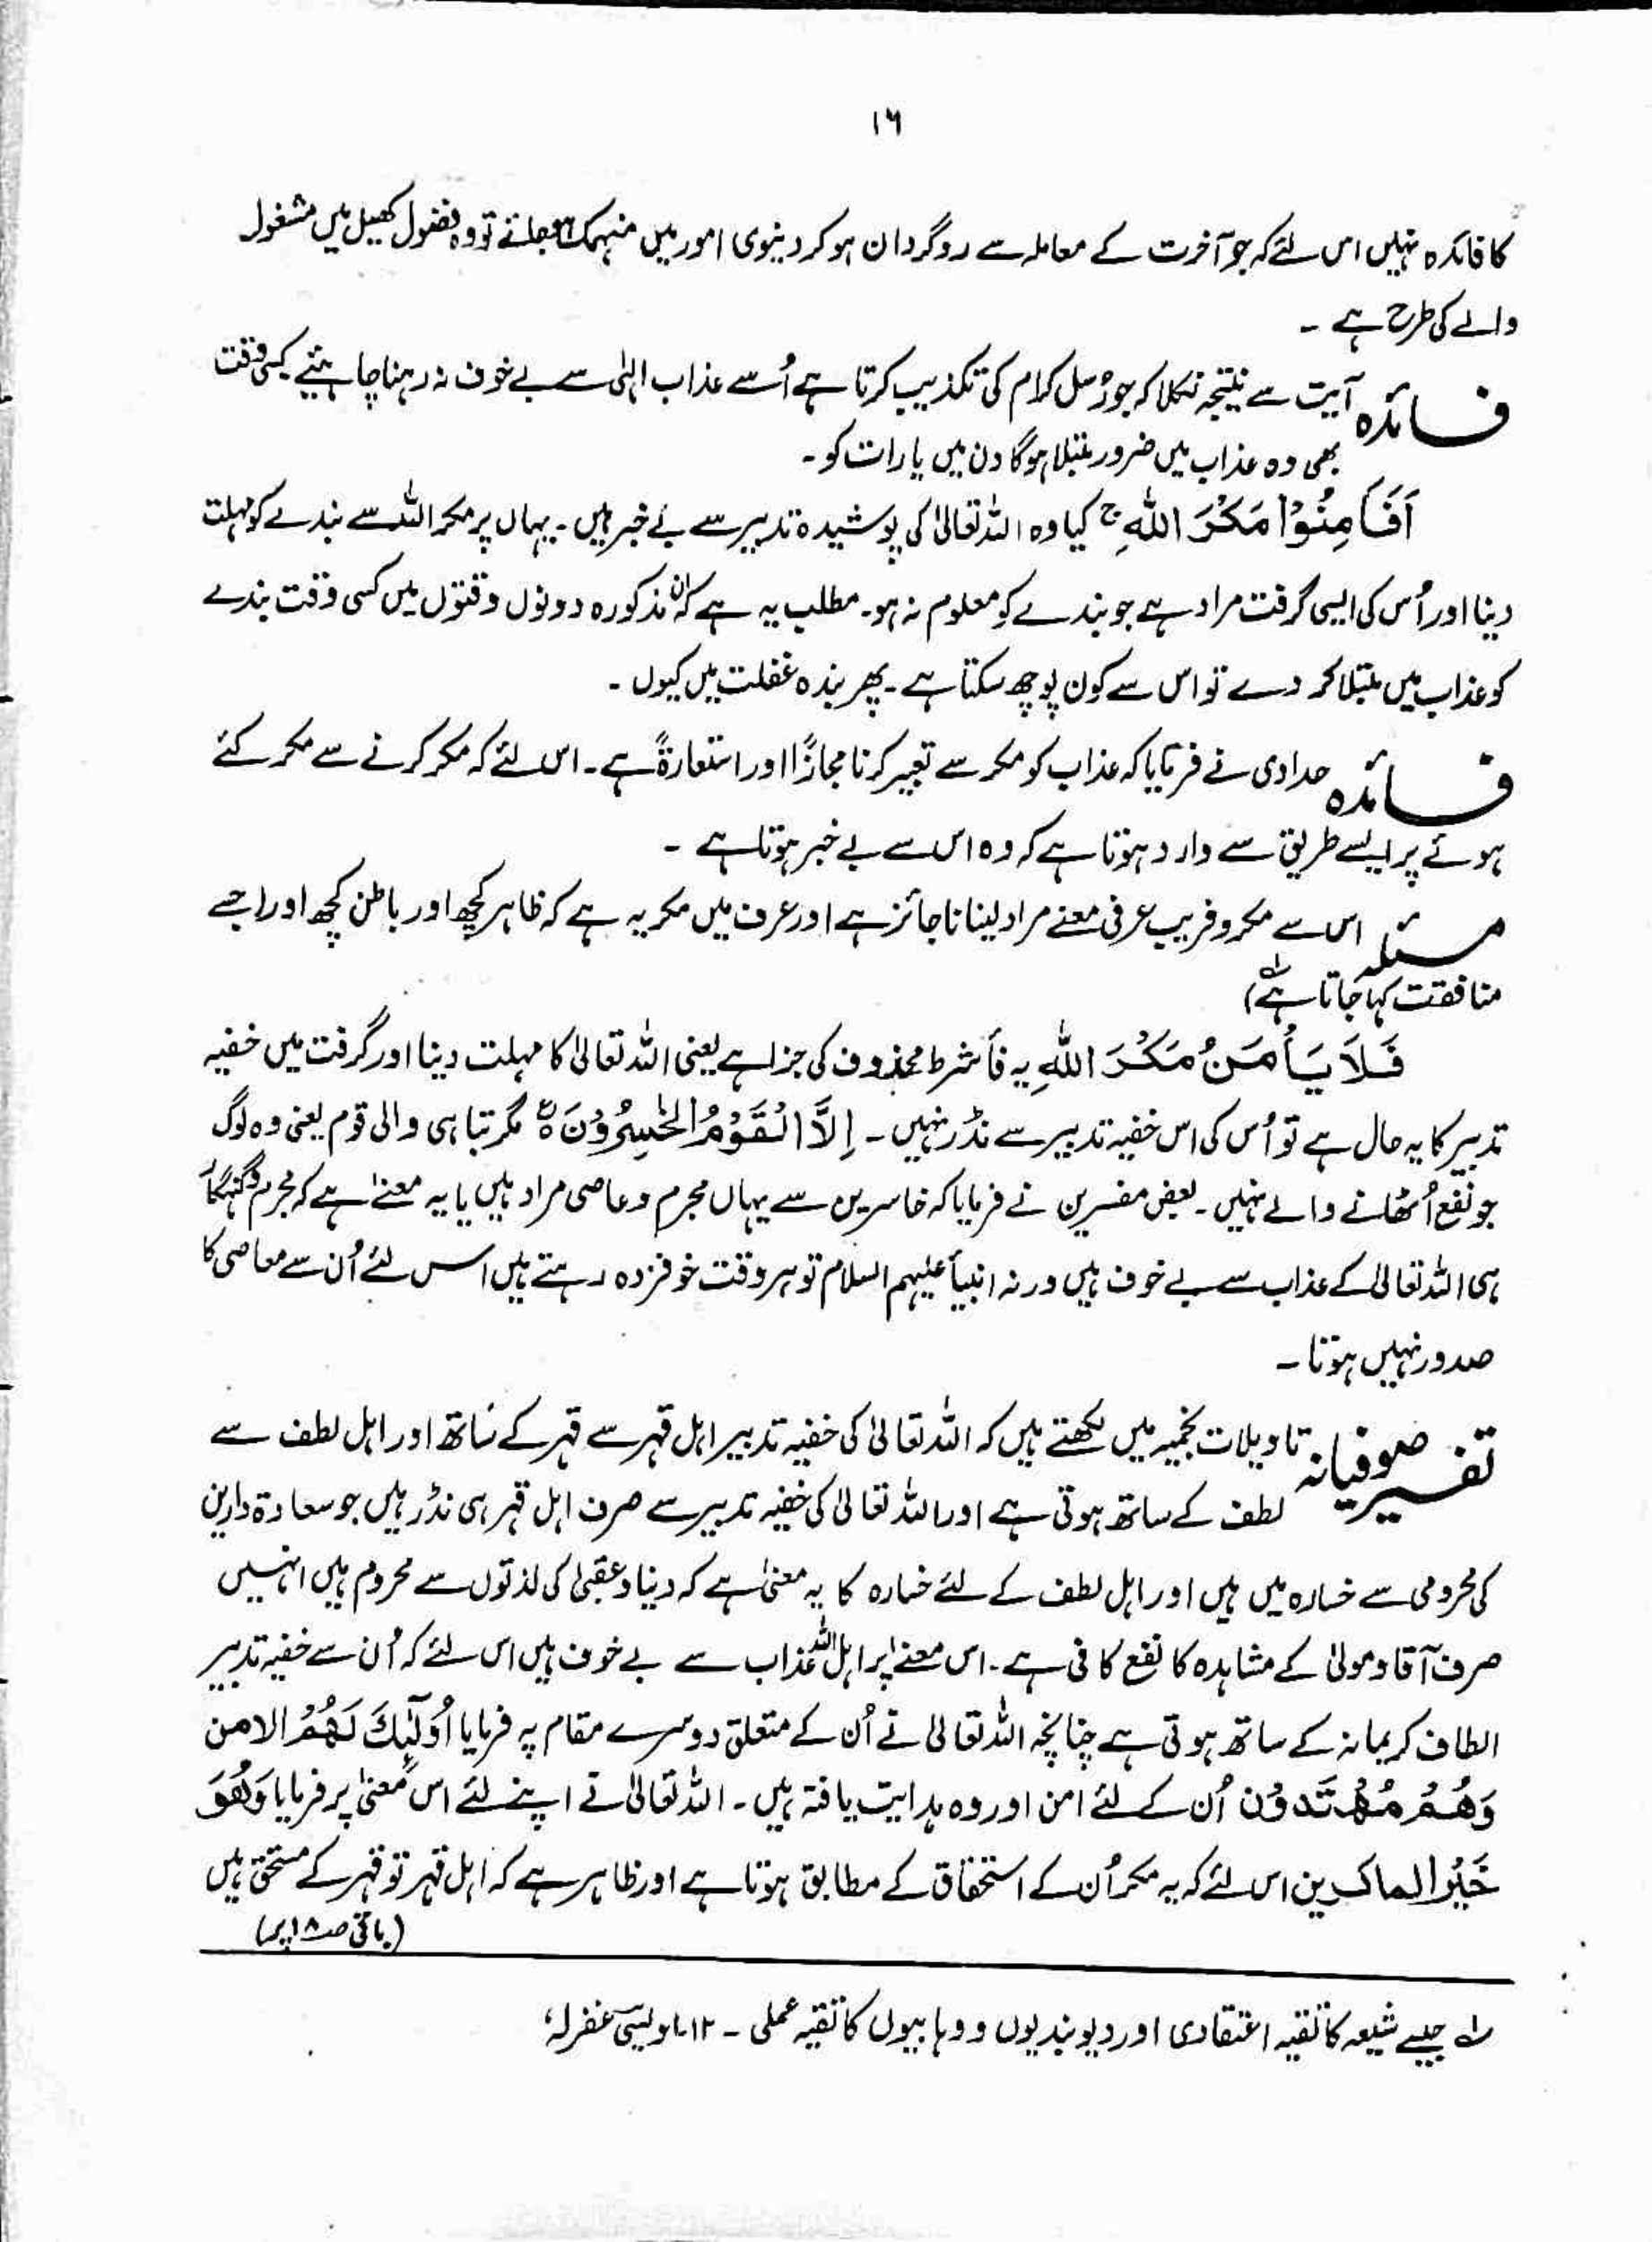 ١٦
کا فائدہ نہیں اس لئے کہ جو آخرت کے معاملہ سے روگردان ہو کر دنیوی امور میں منہمک ہو جاتے تو وہ فضول کھیل میں مشغول
والے کی طرح ہے ۔
فائدہ آیت سے نتیجہ نکلا کہ جو رُسل کرام کی تکذیب کرتا ہے اُسے عذاب الہٰی سے بے خوف نہ رہنا چاہیئے کسی وقت
بھی وہ عذاب میں ضرور مبتلا ہوگا دن میں یا رات کو ۔
اَفَاَمِنُوْا مَكْرَ اللّٰهِ ج کیا وہ اللہ تعالیٰ کی پوشیدہ تدبیر سے بے خبر ہیں ۔ یہاں پر مکر اللہ سے بندے کو مہلت
دینا اور اُس کی ایسی گرفت مراد ہے جو بندے کو معلوم نہ ہو۔ مطلب یہ ہے کہ ان مذکورہ دونوں وقتوں میں کسی وقت بندے
کو عذاب میں مبتلا کر دے تو اس سے کون پوچھ سکتا ہے ۔ پھر بندہ غفلت میں کیوں ۔
فائدہ حدادی نے فرمایا کہ عذاب کو مکر سے تعبیر کرنا مجازًا اور استعارۃً ہے ۔ اس لئے کہ مکر کرنے سے مکر کئے
ہوئے پر ایسے طریق سے وارد ہوتا ہے کہ وہ اس سے بے خبر ہوتا ہے ۔
مسئلہ اس سے مکر و فریب عرفی معنے مراد لینا ناجائز ہے اور عرف میں مکر یہ ہے کہ ظاہر کچھ اور باطن کچھ اور (جسے
منافقت کہا جاتا ہے لہ)
فَلَا يَأْمَنُ مَكْرَ اللّٰهِ یہ فأ شرط محذوف کی جزا ہے یعنی اللہ تعالیٰ کا مہلت دینا اور گرفت میں خفیہ
تدبیر کا یہ حال ہے تو اُس کی اس خفیہ تدبیر سے نڈر نہیں ۔ اِلَّا الْقَوْمُ الْخٰسِرُوْنَ ہ ع مگر تباہی والی قوم یعنی وہ لوگ
جو نفع اُٹھانے والے نہیں ۔ بعض مفسرین نے فرمایا کہ خاسرین سے یہاں مجرم و عاصی مراد ہیں یا یہ معنےٰ ہے کہ مجرم و گنہگار
ہی اللہ تعالیٰ کے عذاب سے بے خوف ہیں ورنہ انبیأ علیہم السلام تو ہر وقت خوفزدہ رہتے ہیں اس لئے اُن سے معاصی کا
صدور نہیں ہوتا ۔
تفسیر صوفیانہ تاویلات نجمیہ میں لکھتے ہیں کہ اللہ تعالیٰ کی خفیہ تدبیر اہل قہر سے قہر کے ساتھ اور اہل لطف سے
لطف کے ساتھ ہوتی ہے اور اللہ تعالیٰ کی خفیہ تدبیر سے صرف اہل قہر ہی نڈر ہیں جو سعادۃ دارین
کی محرومی سے خسارہ میں ہیں اور اہل لطف کے لئے خسارہ کا یہ معنیٰ ہے کہ دنیا و عقبیٰ کی لذتوں سے محروم ہیں انہیں
صرف آقا و مولیٰ کے مشاہدہ کا نفع کافی ہے ۔ اس معنےٰ پر اہل اللہ عذاب سے بے خوف ہیں اس لئے کہ اُن سے خفیہ تدبیر
الطاف کریمانہ کے ساتھ ہوتی ہے چنانچہ اللہ تعالیٰ نے اُن کے متعلق دوسرے مقام پہ فرمایا اُولٰٓئِكَ لَهُمُ الامن
وَهُمْ مُهْتَدُوْن اُن کے لئے امن اور وہ ہدایت یافتہ ہیں ۔ اللہ تعالیٰ نے اپنے لئے اس معنیٰ پر فرمایا وَهُوَ
خَيْرُ الماکرین اس لئے کہ یہ مکر اُن کے استحقاق کے مطابق ہوتا ہے اور ظاہر ہے کہ اہل قہر تو قہر کے مستحق ہیں
(باقی صہ ١٨ پر)
لہ جیسے شیعہ کا تقیہ اعتقادی اور دیوبندیوں و وہابیوں کا تقیہ عملی ۔ ١٢۔ اویسی غفرلہٗ